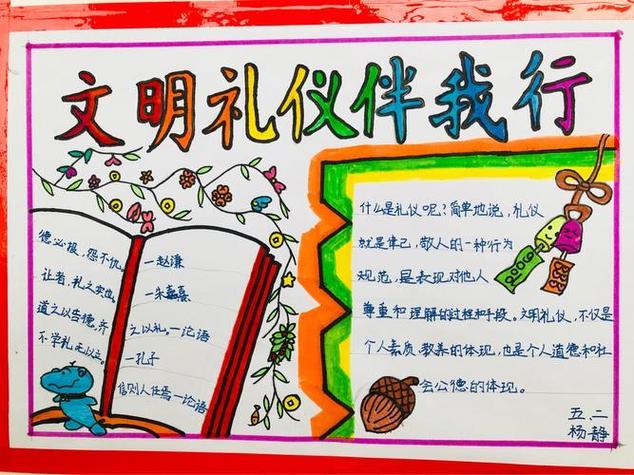 文明礼仪伴我行
德必报,怨不仇。
一赵谦
让者,礼之实也。
一朱嘉熹
道之以告德,齐
之以礼。一论语
不学礼,无以立。
一孔子
信则人任焉一论语
什么是礼仪呢?简单地说,礼仪
就是律己,敬人的一种行为
规范,是表现对他人
尊重和理解的过程和手段。文明礼仪,不仅是
个人素质、教养的体现,也是个人道德和社
会公德的体现。
五、二
杨静